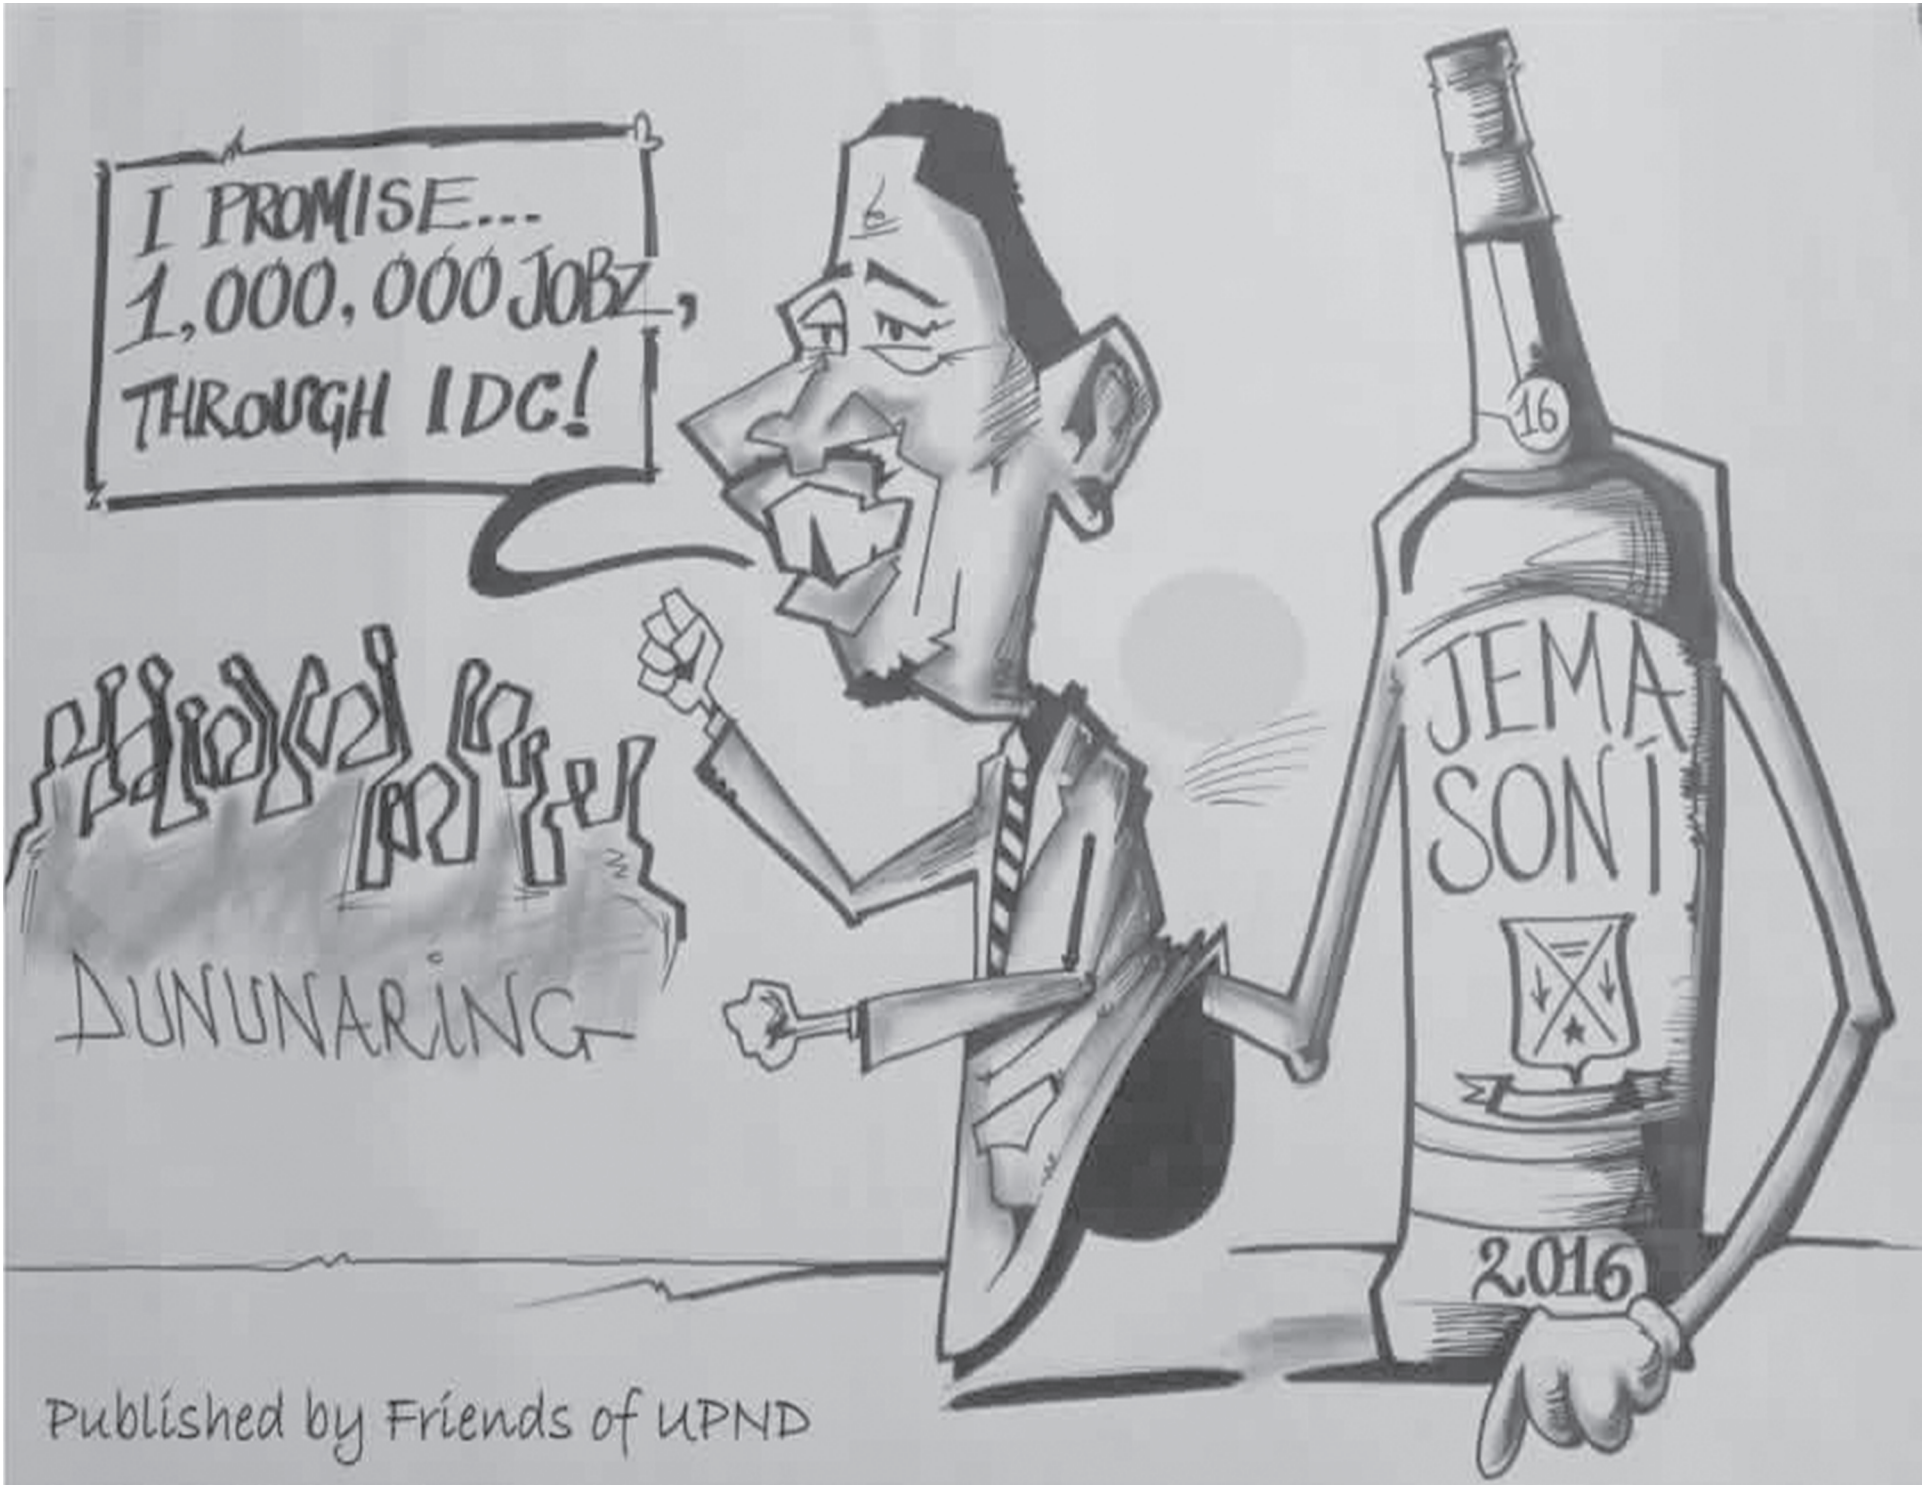 I PROMISE...
1,000,000 JOBZ,
THROUGH IDC!
16
JEMA
SONI
DUNUNARING
2016
Published by Friends of UPND